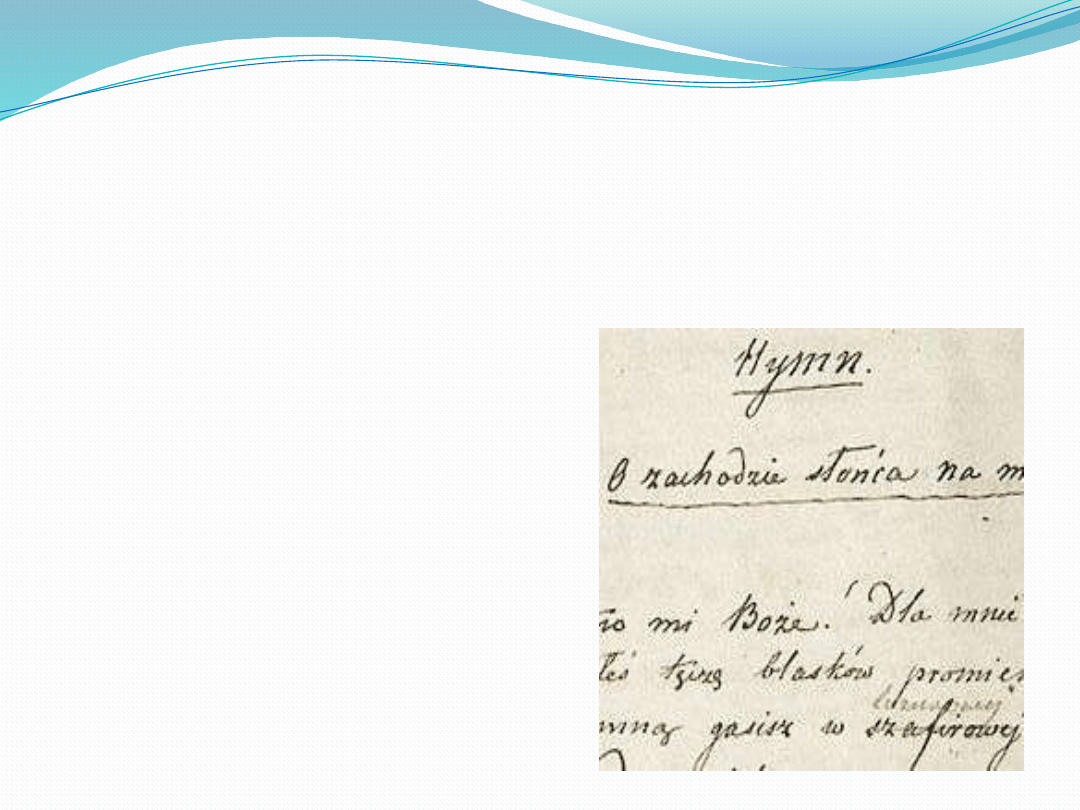 Hymn.
O zachodzie słońca na m
ło mi Boże! Dla mnie
łeś tęczę blasków promien
mną gasisz w szafirowej